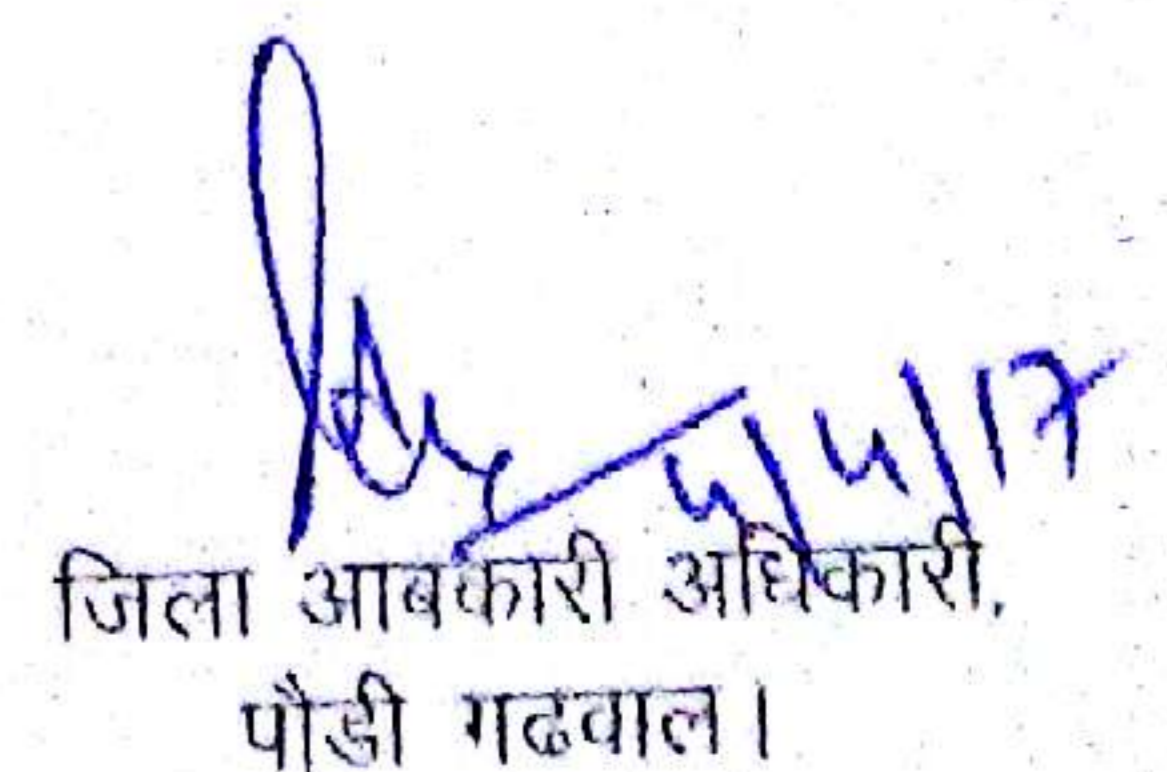 4/4/17
जिला आबकारी अधिकारी,
पौडी गढवाल।